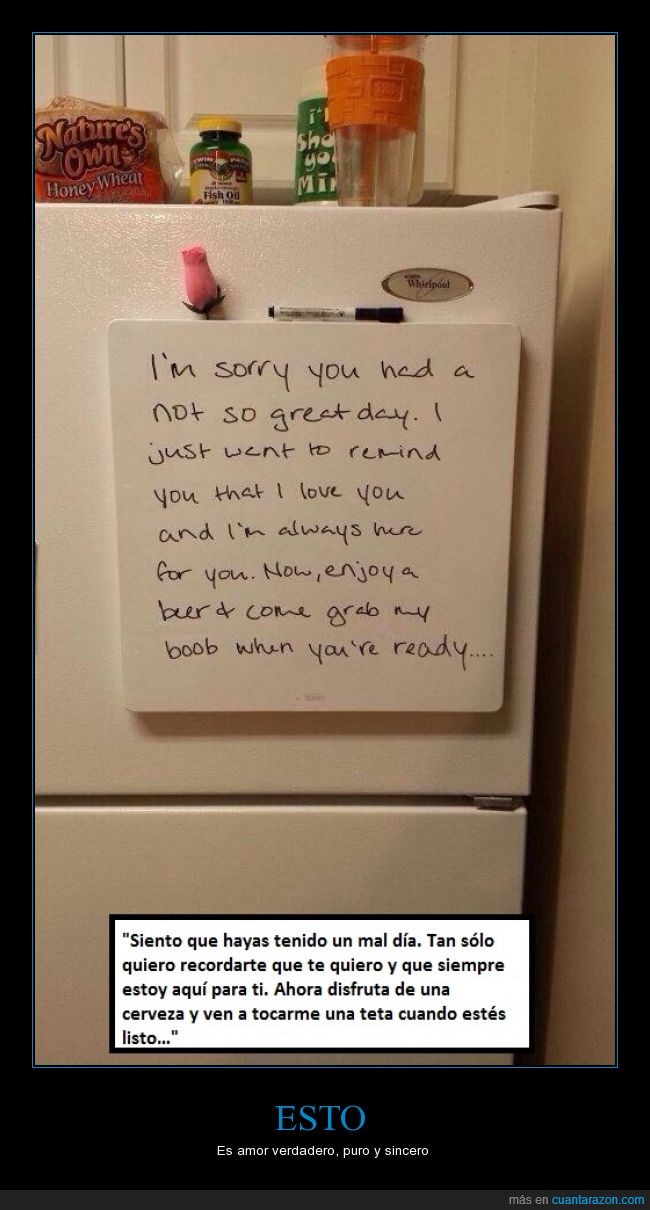 Nature's
Own
Honey Wheat
TWIN PACK
Fish Oil
i'
Sho
yo
Mi
Whirlpool
I'm sorry you had a
not so great day. I
just want to remind
you that I love you
and I'm always here
for you. Now, enjoy a
beer & come grab my
boob when you're ready....
"Siento que hayas tenido un mal día. Tan sólo
quiero recordarte que te quiero y que siempre
estoy aquí para ti. Ahora disfruta de una
cerveza y ven a tocarme una teta cuando estés
listo..."
ESTO
Es amor verdadero, puro y sincero
más en cuantarazon.com